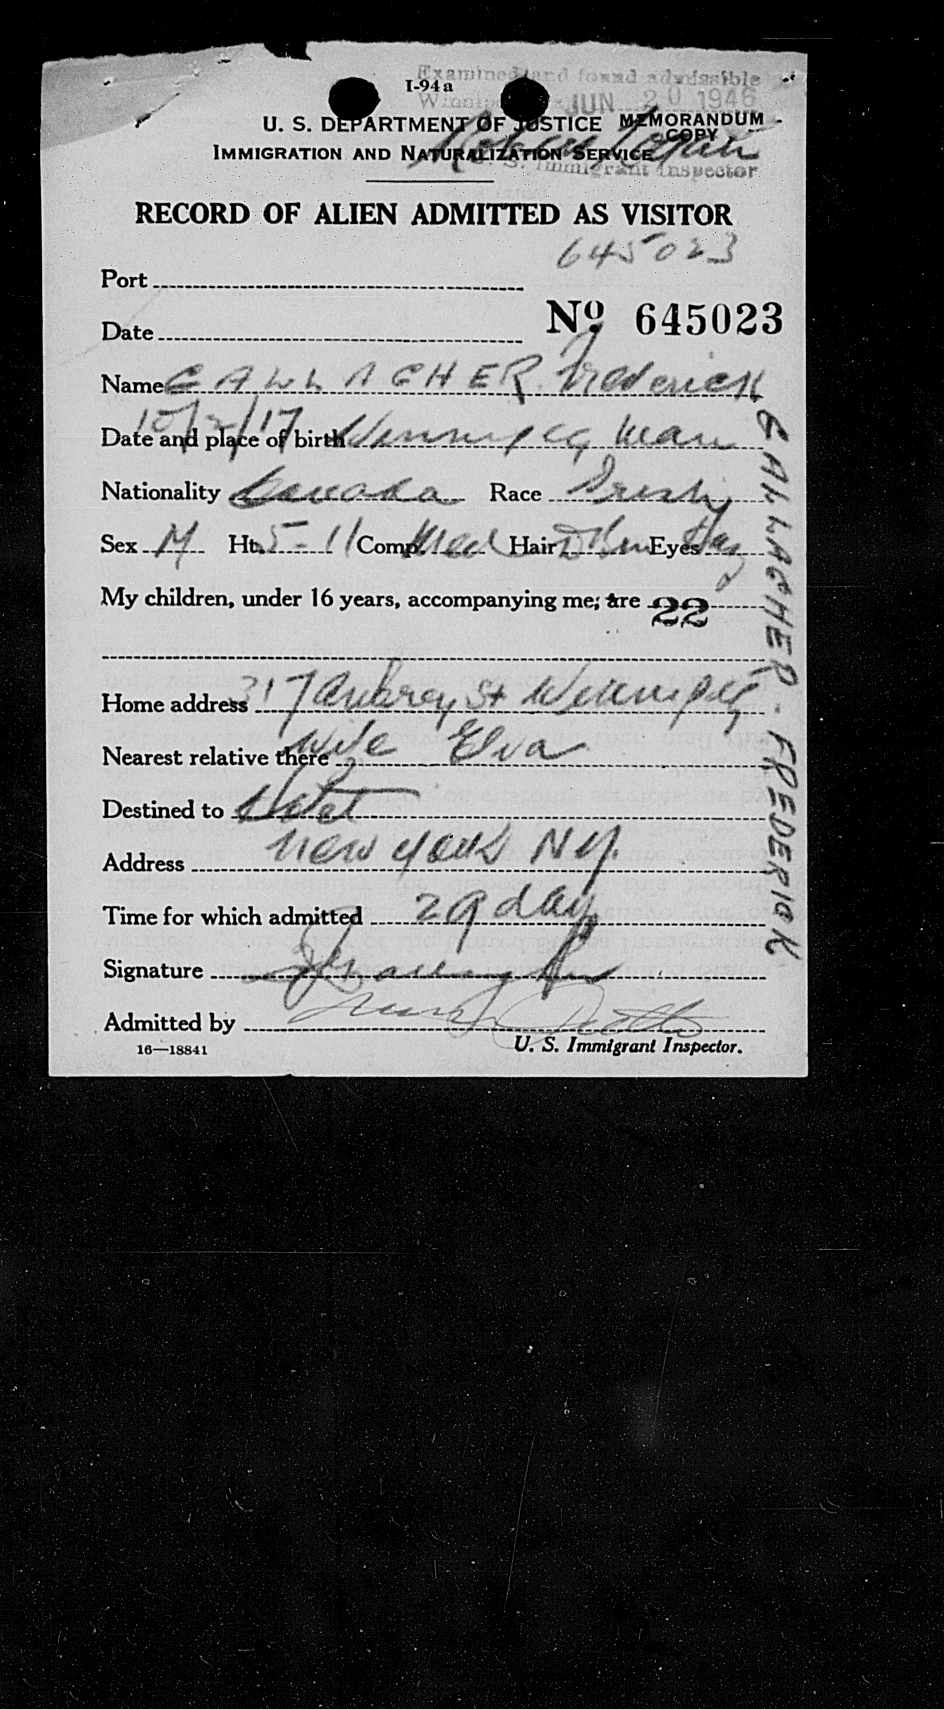 Examined and found admissible
I-94a
JUN 20 1946
U. S. DEPARTMENT OF JUSTICE MEMORANDUM COPY
IMMIGRATION AND NATURALIZATION SERVICE
U. S. Immigrant Inspector
RECORD OF ALIEN ADMITTED AS VISITOR
645023
Port
Nº 645023
Date
Name GALLAGHER Frederick
Date and place of birth Winnipeg Man
Nationality Canada Race Irish
Sex M Ht. 5-11 Comp. Med Hair Eyes Haz
My children, under 16 years, accompanying me, are 22
Home address 317 Aubrey St Winnipeg
Nearest relative there Wife Elva
Destined to Hotel
Address New York NY.
Time for which admitted 29 days
Signature
Admitted by
16—18841
U. S. Immigrant Inspector.
GALLAGHER. FREDERICK